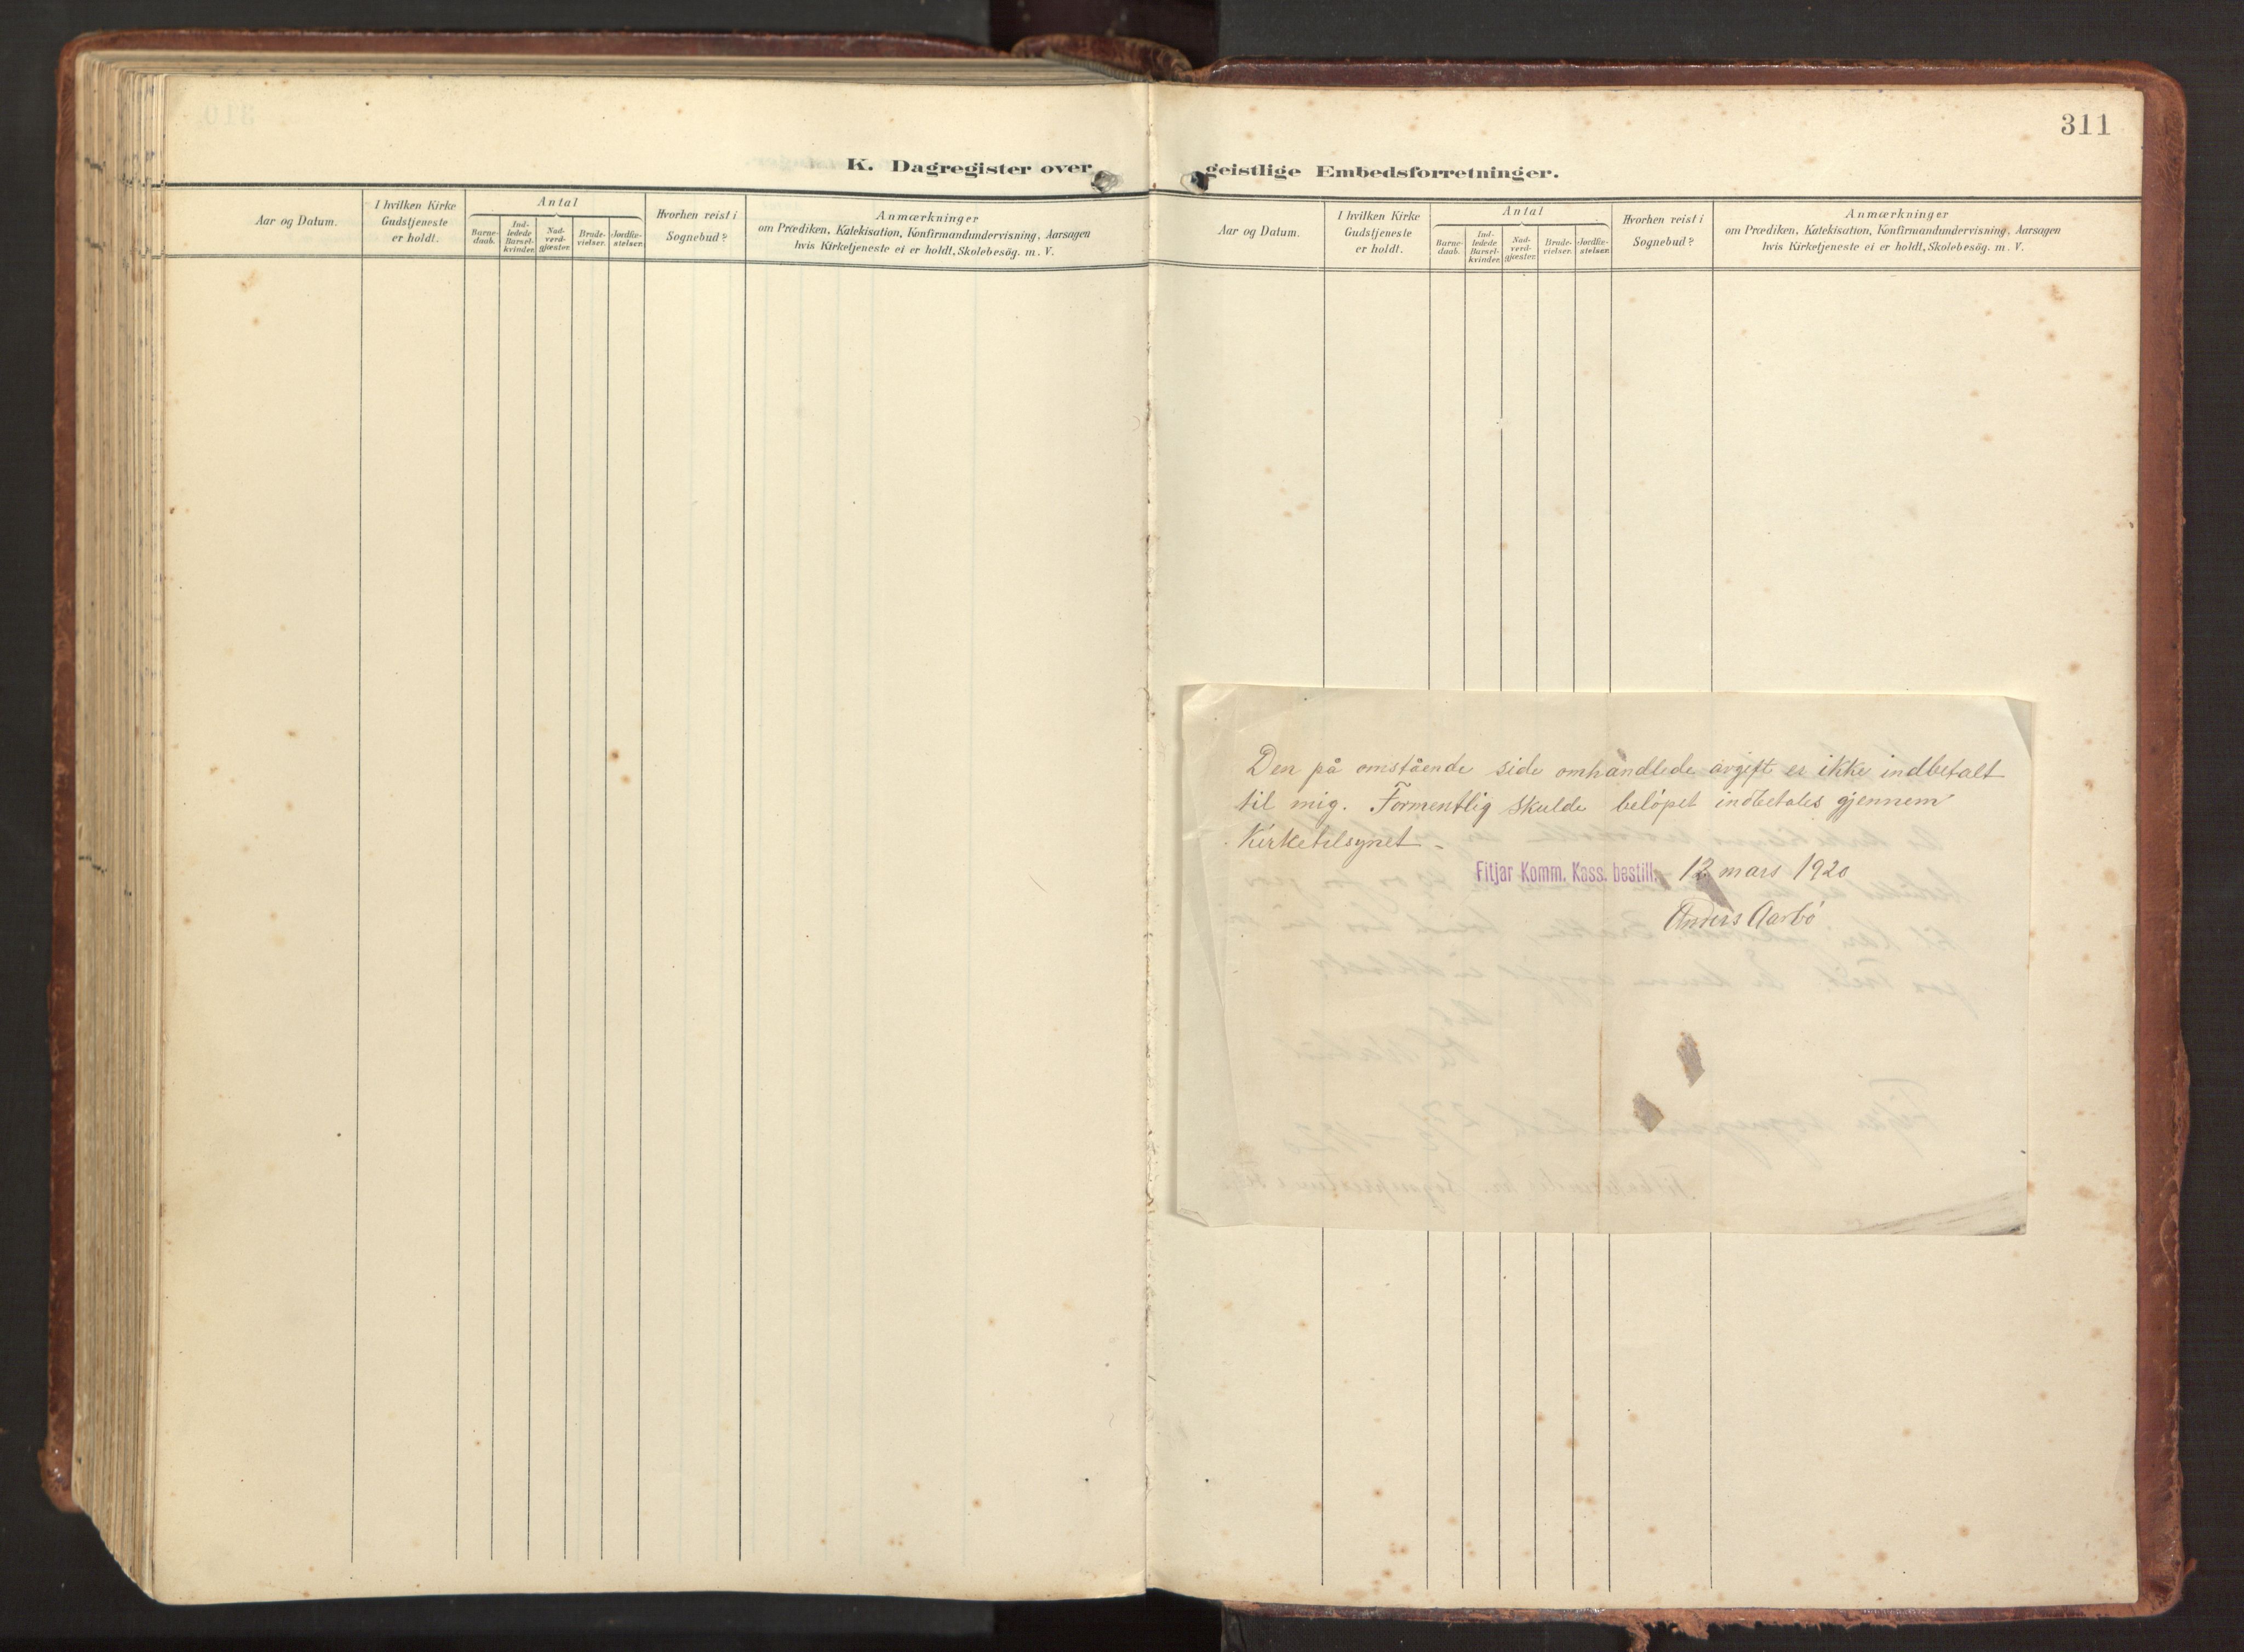 311
K. Dagregister over geistlige Embedsforretninger.
Aar og Datum.
I hvilken Kirke
Gudstjeneste
er holdt.
Antal
Barne-
daab.
Ind-
ledede
Barsel-
kvinder.
Nad-
verd-
gjæster.
Brude-
vielser.
Jordfæ-
stelser.
Hvorhen reist i
Sognebud?
Anmærkninger
om Prædiken, Katekisation, Konfirmandundervisning, Aarsagen
hvis Kirketjeneste ei er holdt, Skolebesög. m. V.
Aar og Datum.
I hvilken Kirke
Gudstjeneste
er holdt.
Antal
Barne-
daab.
Ind-
ledede
Barsel-
kvinder.
Nad-
verd-
gjæster.
Brude-
vielser.
Jordfæ-
stelser.
Hvorhen reist i
Sognebud?
Anmærkninger
om Prædiken, Katekisation, Konfirmandundervisning, Aarsagen
hvis Kirketjeneste ei er holdt, Skolebesög. m. V.
Den på omstående side omhandlede avgift er ikke indbetalt
til mig. Formentlig skulde beløpet indbetales gjennem
Kirketilsynet.
Fitjar Komm. Kass. bestill. 12 mars 1920
Anders Aarbø